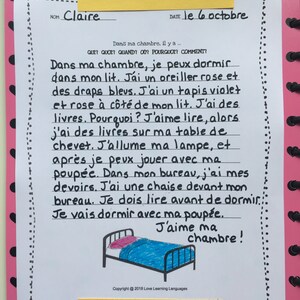 NOM: Claire DATE le 6 octobre
Dans ma chambre, il y a ...
QUI? QUOI? QUAND? OÙ? POURQUOI? COMMENT?
Dans ma chambre, je peux dormir
dans mon lit. J'ai un oreiller rose et
des draps bleus. J'ai un tapis violet
et rose à côté de mon lit. J'ai des
livres. Pourquoi? J'aime lire, alors
j'ai des livres sur ma table de
chevet. J'allume ma lampe, et
après je peux jouer avec ma
poupée. Dans mon bureau, j'ai mes
devoirs. J'ai une chaise devant mon
bureau. Je dois lire avant de dormir.
Je vais dormir avec ma poupée.
J'aime ma
chambre!
Copyright © 2019 Love Learning Languages